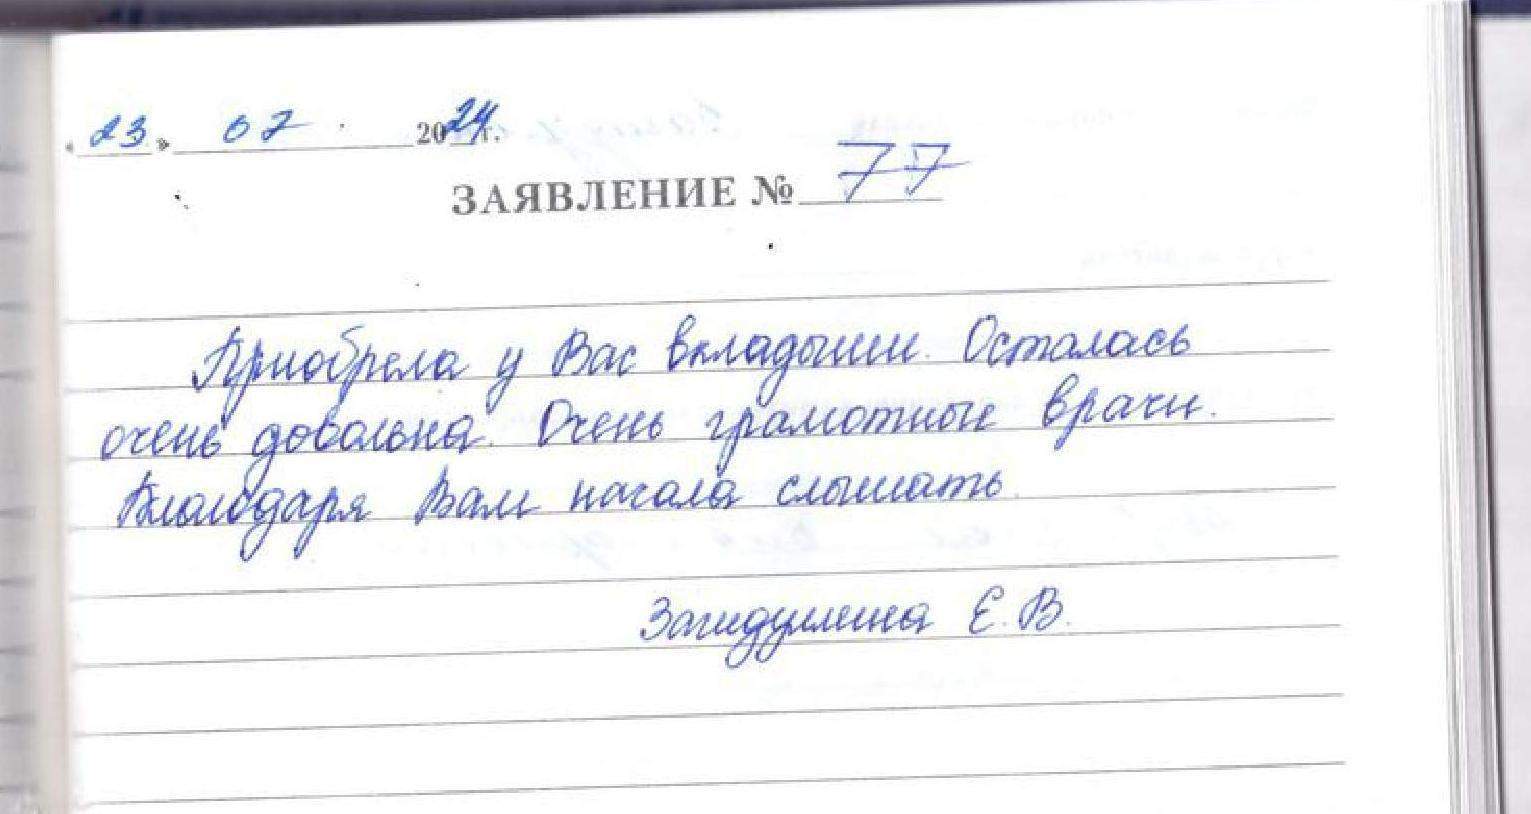 «23» 07. 2024г.
ЗАЯВЛЕНИЕ № 77
Приобрела у Вас вкладыши. Осталась
очень довольна. Очень грамотные врачи.
Благодаря Вам начала слышать.
Загидуллина Е. В.